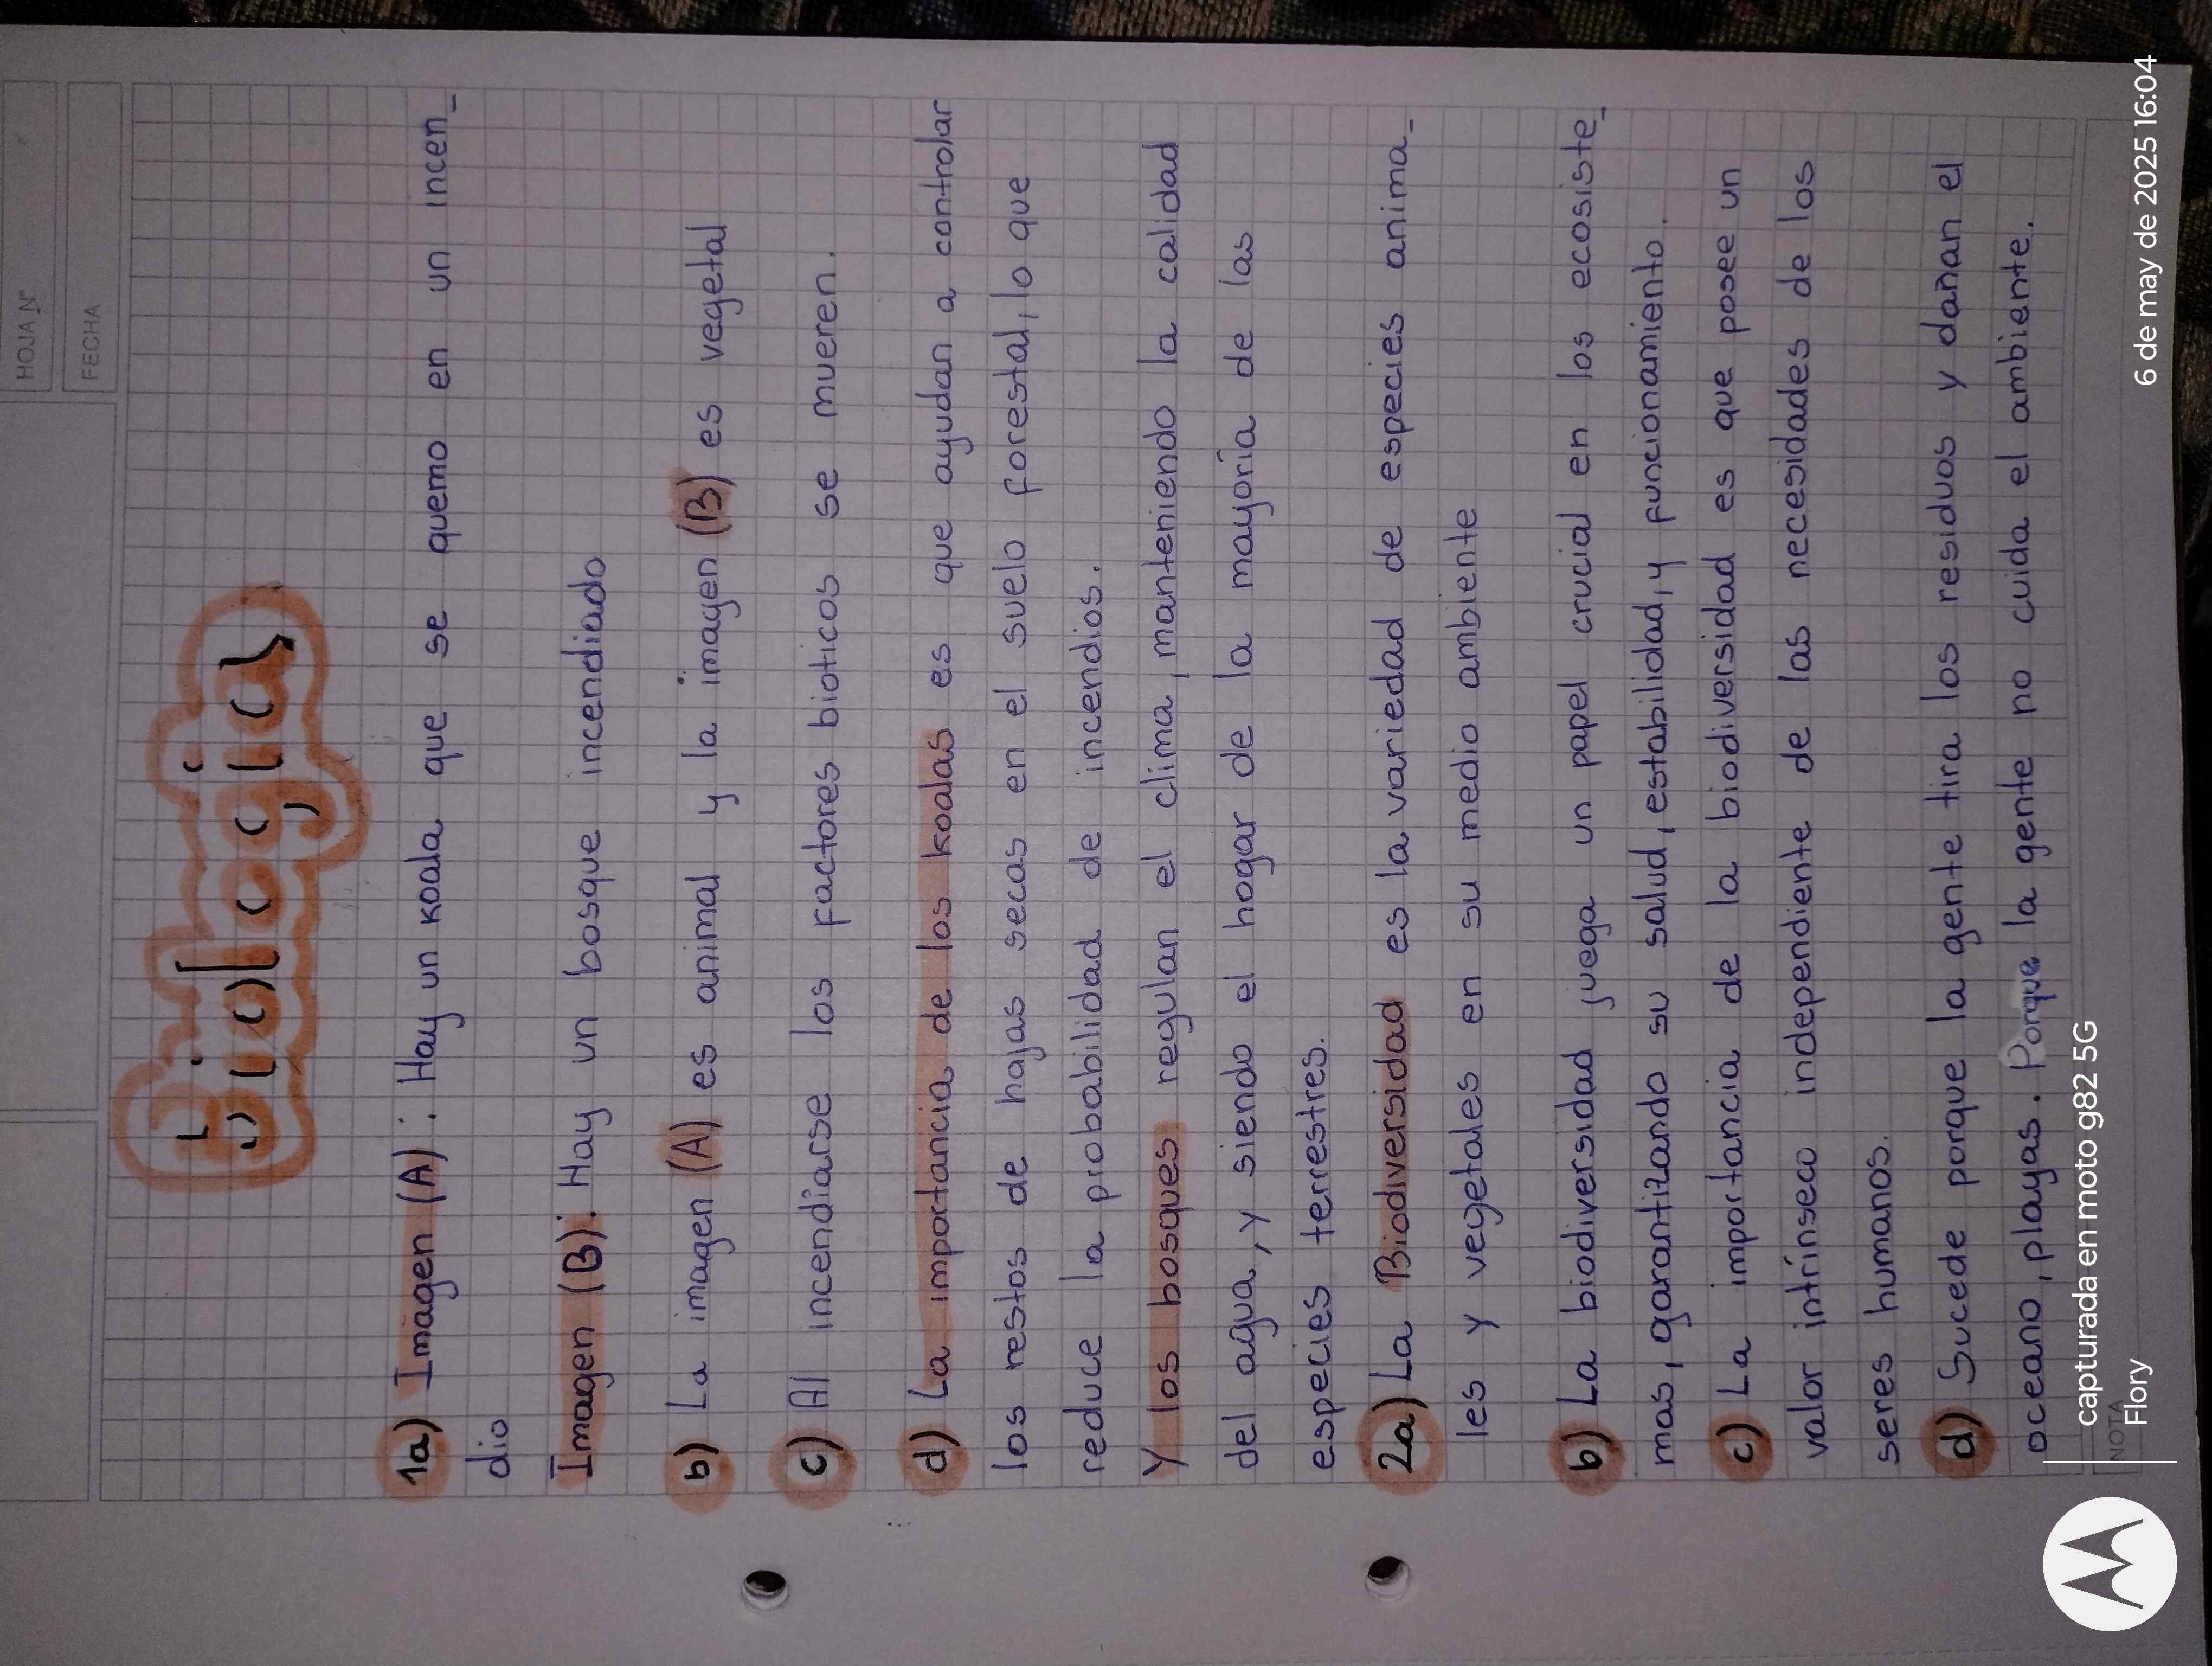 HOJA Nº
FECHA
Biología
1a) Imagen (A): Hay un koala que se quemo en un incen_
dio
Imagen (B): Hay un bosque incendiado
b) La imagen (A) es animal y la imagen (B) es vegetal
c) Al incendiarse los factores bioticos se mueren.
d) La importancia de los koalas es que ayudan a controlar
los restos de hojas secas en el suelo forestal, lo que
reduce la probabilidad de incendios.
Y los bosques regulan el clima, manteniendo la calidad
del agua, y siendo el hogar de la mayoría de las
especies terrestres.
2a) La Biodiversidad es la variedad de especies anima_
les y vegetales en su medio ambiente
b) La biodiversidad juega un papel crucial en los ecosiste_
mas, garantizando su salud, estabilidad, y funcionamiento.
c) La importancia de la biodiversidad es que posee un
valor intrínseco independiente de las necesidades de los
seres humanos.
d) Sucede porque la gente tira los residuos y dañan el
oceano, playas. Porque la gente no cuida el ambiente.
NOTA
capturada en moto g82 5G
Flory
6 de may de 2025 16:04